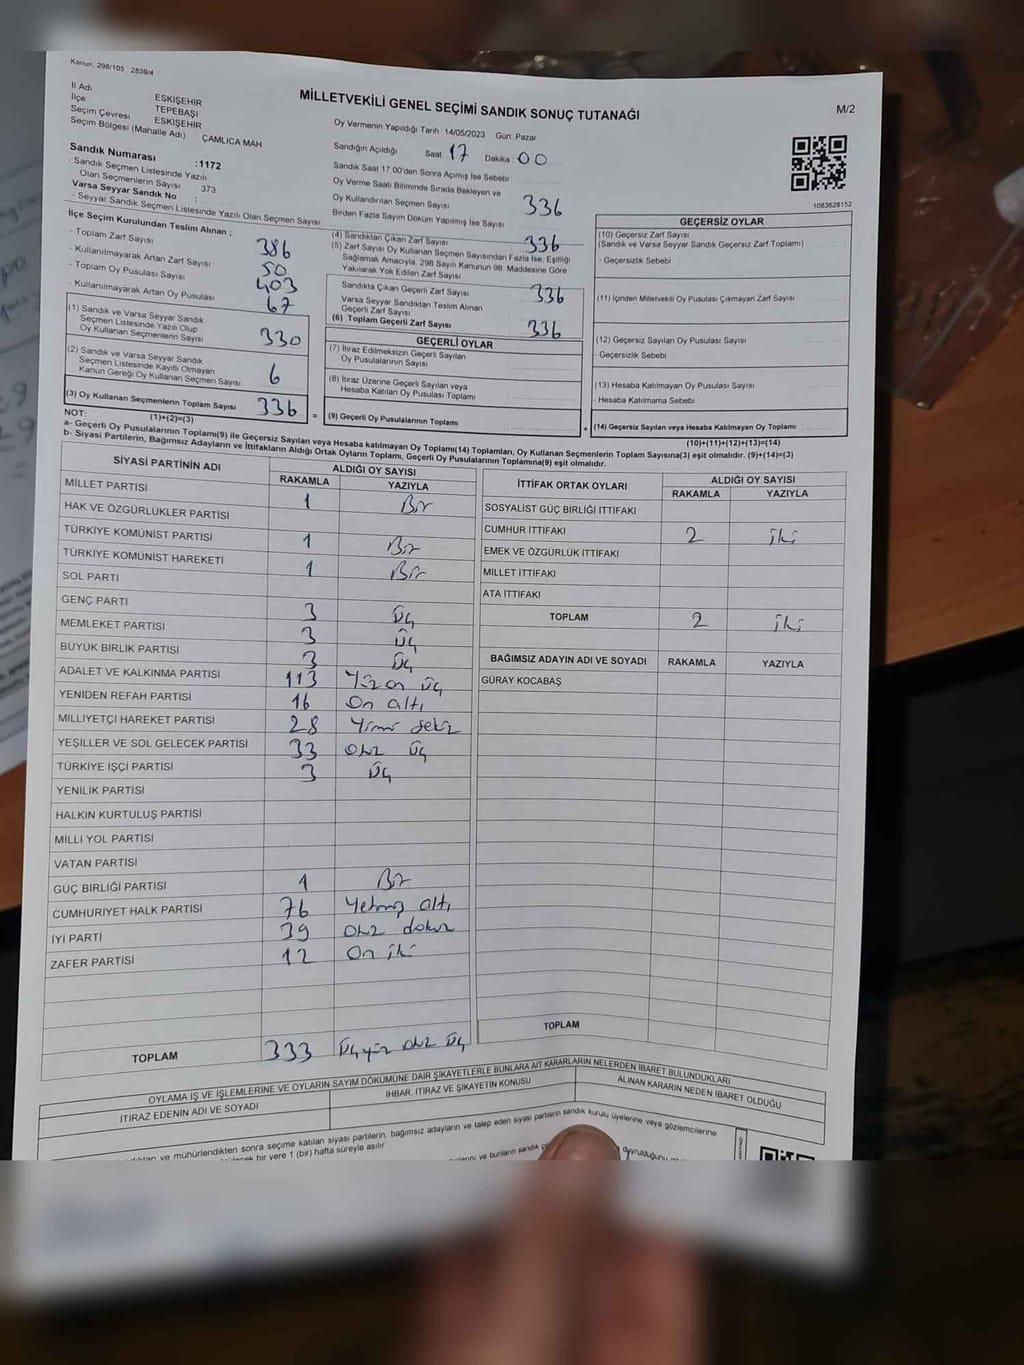 Kanun, 298/105 , 2839/4
MİLLETVEKİLİ GENEL SEÇİMİ SANDIK SONUÇ TUTANAĞI
M/2
İl Adı ESKİŞEHİR
İlçe TEPEBAŞI
Seçim Çevresi ESKİŞEHİR
Seçim Bölgesi (Mahalle Adı) ÇAMLICA MAH
Sandık Numarası :1172
- Sandık Seçmen Listesinde Yazılı
Olan Seçmenlerin Sayısı 373
Varsa Seyyar Sandık No :
- Seyyar Sandık Seçmen Listesinde Yazılı Olan Seçmen Sayısı:
Oy Vermenin Yapıldığı Tarih 14/05/2023 Gün: Pazar
Sandığın Açıldığı Saat: 17 Dakika : 00
Sandık Saat 17.00'den Sonra Açımış İse Sebebi :
Oy Verme Saati Bitiminde Sırada Bekleyen ve
Oy Kullandırılan Seçmen Sayısı 336
Birden Fazla Sayım Döküm Yapılmış İse Sayısı
1083628152
İlçe Seçim Kurulundan Teslim Alınan ;
- Toplam Zarf Sayısı 386
- Kullanılmayarak Artan Zarf Sayısı 50
- Toplam Oy Pusulası Sayısı 403
- Kullanılmayarak Artan Oy Pusulası 67
(1) Sandık ve Varsa Seyyar Sandık
Seçmen Listesinde Yazılı Olup
Oy Kullanan Seçmenlerin Sayısı 330
(2) Sandık ve Varsa Seyyar Sandık
Seçmen Listesinde Kayıtlı Olmayan
Kanun Gereği Oy Kullanan Seçmen Sayısı 6
(3) Oy Kullanan Seçmenlerin Toplam Sayısı 336
(4) Sandıktan Çıkan Zarf Sayısı 336
(5) Zarf Sayısı Oy Kullanan Seçmen Sayısından Fazla İse, Eşitliği
Sağlamak Amacıyla, 298 Sayılı Kanunun 98. Maddesine Göre
Yakılarak Yok Edilen Zarf Sayısı
Sandıkta Çıkan Geçerli Zarf Sayısı 336
Varsa Seyyar Sandıktan Teslim Alınan
Geçerli Zarf Sayısı
(6) Toplam Geçerli Zarf Sayısı 336
GEÇERLİ OYLAR
(7) İtiraz Edilmeksizin Geçerli Sayılan
Oy Pusulalarının Sayısı
(8) İtiraz Üzerine Geçerli Sayılan veya
Hesaba Katılan Oy Pusulası Toplamı
= (9) Geçerli Oy Pusulalarının Toplamı
GEÇERSİZ OYLAR
(10) Geçersiz Zarf Sayısı
(Sandık ve Varsa Seyyar Sandık Geçersiz Zarf Toplamı)
- Geçersizlik Sebebi
(11) İçinden Milletvekili Oy Pusulası Çıkmayan Zarf Sayısı
(12) Geçersiz Sayılan Oy Pusulası Sayısı
- Geçersizlik Sebebi
(13) Hesaba Katılmayan Oy Pusulası Sayısı
- Hesaba Katılmama Sebebi
+ (14) Geçersiz Sayılan veya Hesaba Katılmayan Oy Pusulası Toplamı
NOT: (1)+(2)=(3) (10)+(11)+(12)+(13)=(14)
a- Geçerli Oy Pusulalarının Toplamı(9) ile Geçersiz Sayılan veya Hesaba katılmayan Oy Toplamı(14) Toplamları, Oy Kullanan Seçmenlerin Toplam Sayısına(3) eşit olmalıdır. (9)+(14)=(3)
b- Siyasi Partilerin, Bağımsız Adayların ve İttifakların Aldığı Ortak Oyların Toplamı, Geçerli Oy Pusulalarının Toplamına(9) eşit olmalıdır.
SİYASİ PARTİNİN ADI ALDIĞI OY SAYISI
RAKAMLA YAZIYLA
MİLLET PARTİSİ 1 Bir
HAK VE ÖZGÜRLÜKLER PARTİSİ
TÜRKİYE KOMÜNİST PARTİSİ 1 Bir
TÜRKİYE KOMÜNİST HAREKETİ 1 Bir
SOL PARTİ
GENÇ PARTİ 3 Üç
MEMLEKET PARTİSİ 3 Üç
BÜYÜK BİRLİK PARTİSİ 3 Üç
ADALET VE KALKINMA PARTİSİ 113 Yüz on üç
YENİDEN REFAH PARTİSİ 16 On altı
MİLLİYETÇİ HAREKET PARTİSİ 28 Yirmi sekiz
YEŞİLLER VE SOL GELECEK PARTİSİ 33 Otuz üç
TÜRKİYE İŞÇİ PARTİSİ 3 Üç
YENİLİK PARTİSİ
HALKIN KURTULUŞ PARTİSİ
MİLLİ YOL PARTİSİ
VATAN PARTİSİ
GÜÇ BİRLİĞİ PARTİSİ 1 Bir
CUMHURİYET HALK PARTİSİ 76 Yetmiş altı
İYİ PARTİ 39 Otuz dokuz
ZAFER PARTİSİ 12 On iki
TOPLAM 333 Üç yüz otuz üç
İTTİFAK ORTAK OYLARI ALDIĞI OY SAYISI
RAKAMLA YAZIYLA
SOSYALİST GÜÇ BİRLİĞİ İTTİFAKI
CUMHUR İTTİFAKI 2 iki
EMEK VE ÖZGÜRLÜK İTTİFAKI
MİLLET İTTİFAKI
ATA İTTİFAKI
TOPLAM 2 iki
BAĞIMSIZ ADAYIN ADI VE SOYADI RAKAMLA YAZIYLA
GÜRAY KOCABAŞ
TOPLAM
OYLAMA İŞ VE İŞLEMLERİNE VE OYLARIN SAYIM DÖKÜMÜNE DAİR ŞİKAYETLERLE BUNLARA AİT KARARLARIN NELERDEN İBARET BULUNDUKLARI
İTİRAZ EDENİN ADI VE SOYADI İHBAR, İTİRAZ VE ŞİKAYETİN KONUSU ALINAN KARARIN NEDEN İBARET OLDUĞU
ve mühürlendikten sonra seçime katılan siyasi partilerin, bağımsız adayların ve talep eden siyasi partilerin sandık kurulu üyelerine veya gözlemcilerine
bir yere 1 (bir) hafta süreyle asılır